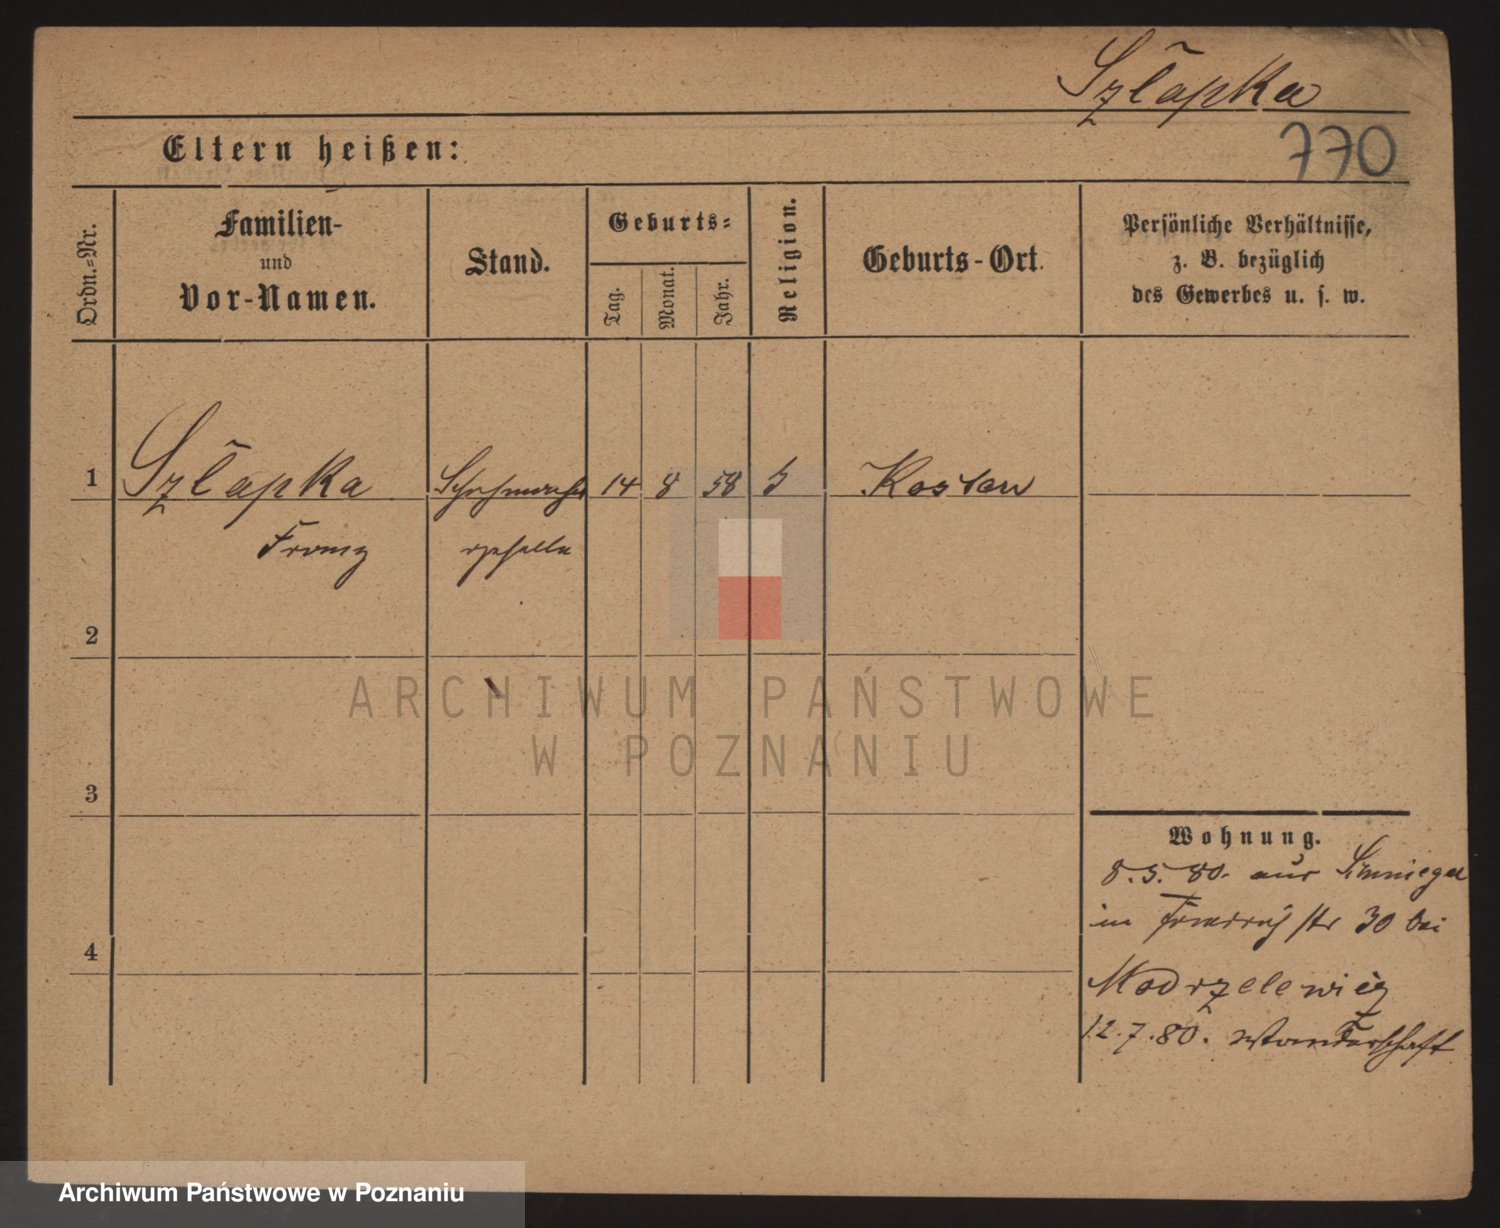 Szlapka
770
Eltern heißen:
Ordn.-Nr.
Familien-
und
Vor-Namen.
Stand.
Geburts-
Tag.
Monat.
Jahr.
Religion.
Geburts-Ort.
Persönliche Verhältnisse,
z. B. bezüglich
des Gewerbes u. s. w.
1 Szlapka Schuhmacher 14 8 58 Kosten
Franz geselle
2
3
4
Wohnung.
8.5.80. aus Schmiegel
in Friedrichstr 30 bei
Modrzelewicz
12.7.80. Wanderschaft
ARCHIWUM PAŃSTWOWE
W POZNANIU
Archiwum Państwowe w Poznaniu